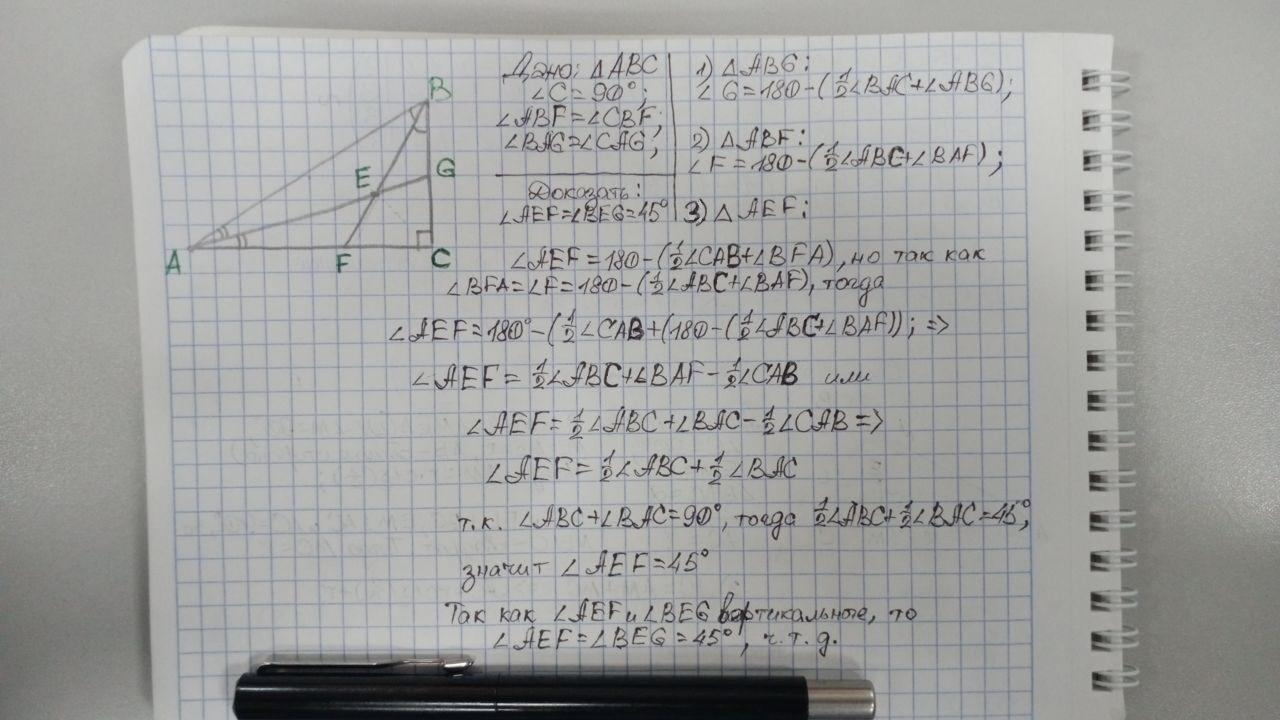 B
E
G
A
F
C
Дано: △ABC
∠C=90°;
∠ABF=∠CBF;
∠BAG=∠CAG;
Доказать:
∠AEF=∠BEG=45°
1) △ABG:
∠G=180-(½∠BAC+∠ABG);
2) △ABF:
∠F=180-(½∠ABC+∠BAF);
3) △AEF:
∠AEF=180-(½∠CAB+∠BFA), но так как
∠BFA=∠F=180-(½∠ABC+∠BAF), тогда
∠AEF=180°-(½∠CAB+(180-(½∠ABC+∠BAF)); =>
∠AEF=½∠ABC+∠BAF-½∠CAB или
∠AEF=½∠ABC+∠BAC-½∠CAB=>
∠AEF=½∠ABC+½∠BAC
т.к. ∠ABC+∠BAC=90°, тогда ½∠ABC+½∠BAC=45°,
значит ∠AEF=45°
Так как ∠AEF и ∠BEG вертикальные, то
∠AEF=∠BEG=45°, ч.т.д.